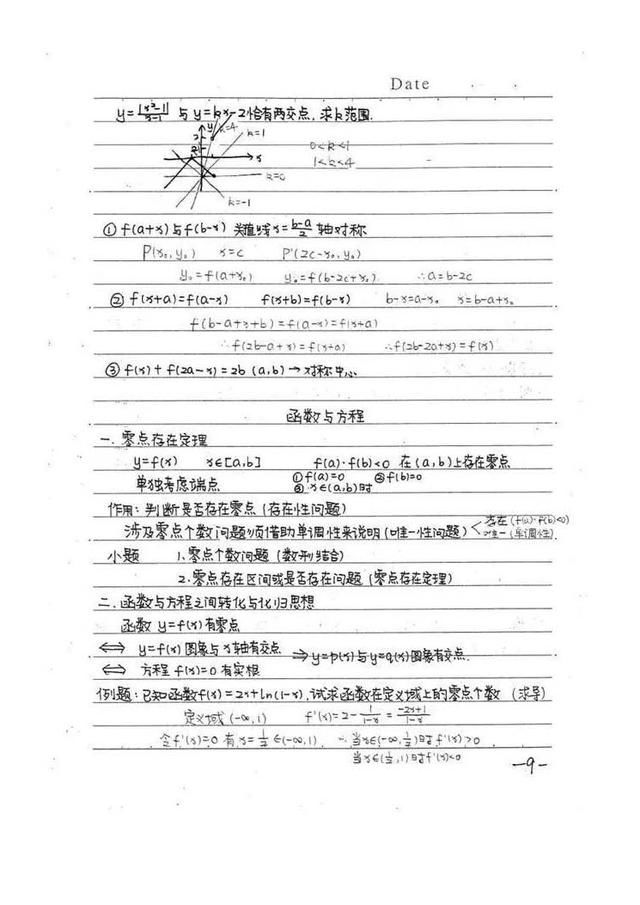 Date
y=|x²-1|/(x-1) 与 y=kx-2恰有两交点,求k范围.
y k=4 k=1
2
x 0<k<1
1<k<4
k=0
k=-1
① f(a+x)与f(b-x) 关直线x=(b-a)/2 轴对称
P(x₀,y₀) x=c P'(2c-x₀,y₀)
y₀=f(a+x₀) y₀=f(b-2c+x₀) ∴a=b-2c
② f(x+a)=f(a-x) f(x+b)=f(b-x) b-x=a-x₀ x=b-a+x₀
f(b-a+x+b)=f(a-x)=f(x+a)
∴f(2b-a+x)=f(x+a) ∴f(2b-2a+x)=f(x)
③ f(x)+f(2a-x)=2b (a,b)→对称中心
函数与方程
一. 零点存在定理
y=f(x) x∈[a,b] f(a)·f(b)<0 在(a,b)上存在零点
单独考虑端点 ①f(a)=0 ②f(b)=0
③ x∈(a,b)时
作用:判断是否存在零点(存在性问题)
涉及零点个数问题须借助单调性来说明(唯一性问题) < 存在(f(a)·f(b)<0)
唯一(单调性)
小题 1.零点个数问题(数形结合)
2.零点存在区间或是否存在问题(零点存在定理)
二. 函数与方程之间转化与化归思想
函数 y=f(x)有零点
⇔ y=f(x)图象与x轴有交点 ⇒y=p(x)与y=q(x)图象有交点.
⇔ 方程 f(x)=0 有实根
例题:已知函数f(x)=2x+ln(1-x),试求函数在定义域上的零点个数 (求导)
定义域(-∞,1) f'(x)=2-1/(1-x)=(-2x+1)/(1-x)
令f'(x)=0 有x=1/2∈(-∞,1) ∴当x∈(-∞,1/2)时f'(x)>0
当x∈(1/2,1)时f'(x)<0
-9-